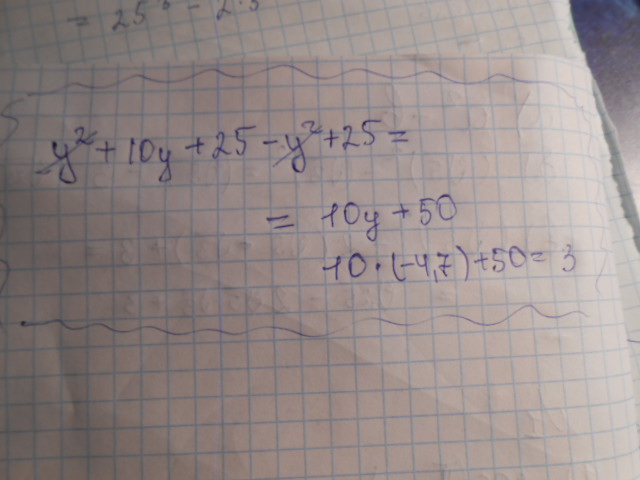 = 25
y² + 10y + 25 - y² + 25 =
= 10y + 50
10 · (-4,7) + 50 = 3